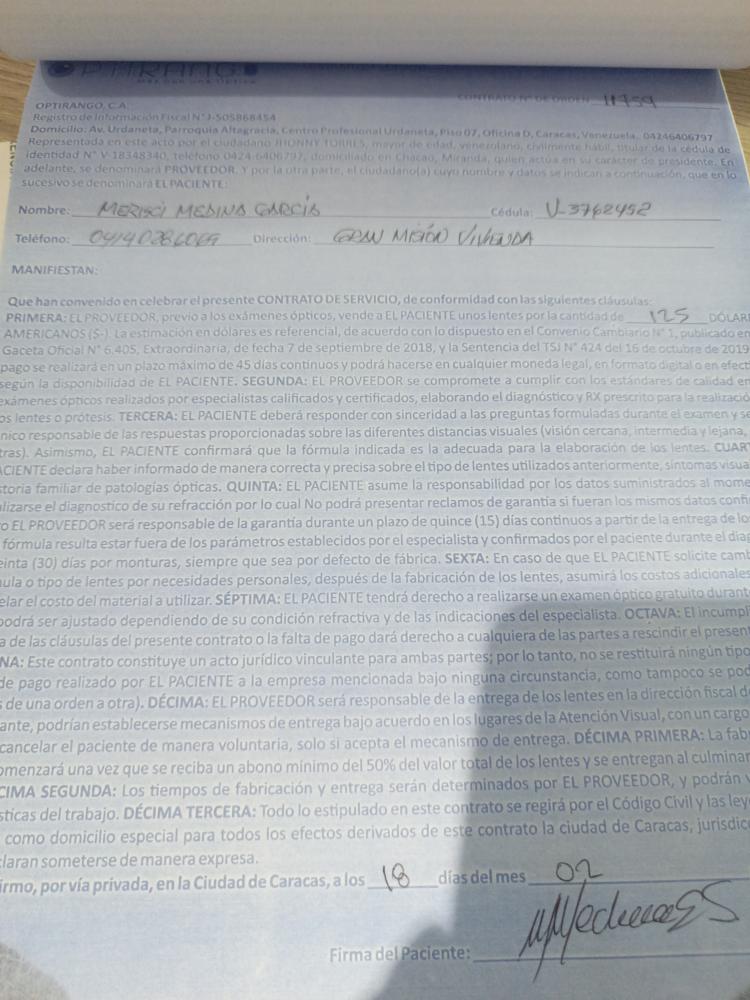 OPTIRANGO
CONTRATO N° DE ORDEN 11759
OPTIRANGO, C.A.
Registro de Información Fiscal N°J-505868454
Domicilio: Av. Urdaneta, Parroquia Altagracia, Centro Profesional Urdaneta, Piso 07, Oficina D, Caracas, Venezuela, 04246406797
Representada en este acto por el ciudadano JHONNY TORRES, mayor de edad, venezolano, civilmente hábil, titular de la cédula de
identidad N° V-18348340, teléfono 0424-6406797, domiciliado en Chacao, Miranda, quien actúa en su carácter de presidente. En
adelante, se denominará PROVEEDOR. Y por la otra parte, el ciudadano(a) cuyo nombre y datos se indican a continuación, que en lo
sucesivo se denominará EL PACIENTE:
Nombre: MERISCI MEDINA GARCÍA Cédula: V-3762452
Teléfono: 04140286069 Dirección: GRAN MISIÓN VIVIENDA
MANIFIESTAN:
Que han convenido en celebrar el presente CONTRATO DE SERVICIO, de conformidad con las siguientes cláusulas:
PRIMERA: EL PROVEEDOR, previo a los exámenes ópticos, vende a EL PACIENTE unos lentes por la cantidad de 125 DÓLAR
AMERICANOS ($-). La estimación en dólares es referencial, de acuerdo con lo dispuesto en el Convenio Cambiario N° 1, publicado en
Gaceta Oficial N° 6.405, Extraordinaria, de fecha 7 de septiembre de 2018, y la Sentencia del TSJ N° 424 del 16 de octubre de 2019
pago se realizará en un plazo máximo de 45 días continuos y podrá hacerse en cualquier moneda legal, en formato digital o en efect
según la disponibilidad de EL PACIENTE. SEGUNDA: EL PROVEEDOR se compromete a cumplir con los estándares de calidad en
exámenes ópticos realizados por especialistas calificados y certificados, elaborando el diagnóstico y RX prescrito para la realizació
os lentes o prótesis. TERCERA: EL PACIENTE deberá responder con sinceridad a las preguntas formuladas durante el examen y se
nico responsable de las respuestas proporcionadas sobre las diferentes distancias visuales (visión cercana, intermedia y lejana,
tras). Asimismo, EL PACIENTE confirmará que la fórmula indicada es la adecuada para la elaboración de los lentes. CUAR
ACIENTE declara haber informado de manera correcta y precisa sobre el tipo de lentes utilizados anteriormente, síntomas visua
storia familiar de patologías ópticas. QUINTA: EL PACIENTE asume la responsabilidad por los datos suministrados al mome
alizarse el diagnostico de su refracción por lo cual No podrá presentar reclamos de garantía si fueran los mismos datos confi
o EL PROVEEDOR será responsable de la garantía durante un plazo de quince (15) días continuos a partir de la entrega de lo
fórmula resulta estar fuera de los parámetros establecidos por el especialista y confirmados por el paciente durante el diag
einta (30) días por monturas, siempre que sea por defecto de fábrica. SEXTA: En caso de que EL PACIENTE solicite camb
nula o tipo de lentes por necesidades personales, después de la fabricación de los lentes, asumirá los costos adicionales
elar el costo del material a utilizar. SÉPTIMA: EL PACIENTE tendrá derecho a realizarse un examen óptico gratuito durant
podrá ser ajustado dependiendo de su condición refractiva y de las indicaciones del especialista. OCTAVA: El incumpl
a de las cláusulas del presente contrato o la falta de pago dará derecho a cualquiera de las partes a rescindir el present
NA: Este contrato constituye un acto jurídico vinculante para ambas partes; por lo tanto, no se restituirá ningún tipo
de pago realizado por EL PACIENTE a la empresa mencionada bajo ninguna circunstancia, como tampoco se pod
s de una orden a otra). DÉCIMA: EL PROVEEDOR será responsable de la entrega de los lentes en la dirección fiscal d
ante, podrían establecerse mecanismos de entrega bajo acuerdo en los lugares de la Atención Visual, con un cargo
cancelar el paciente de manera voluntaria, solo si acepta el mecanismo de entrega. DÉCIMA PRIMERA: La fab
omenzará una vez que se reciba un abono mínimo del 50% del valor total de los lentes y se entregan al culminar
CIMA SEGUNDA: Los tiempos de fabricación y entrega serán determinados por EL PROVEEDOR, y podrán v
sticas del trabajo. DÉCIMA TERCERA: Todo lo estipulado en este contrato se regirá por el Código Civil y las ley
como domicilio especial para todos los efectos derivados de este contrato la ciudad de Caracas, jurisdic
claran someterse de manera expresa.
irmo, por vía privada, en la Ciudad de Caracas, a los 18 días del mes 02
Firma del Paciente: